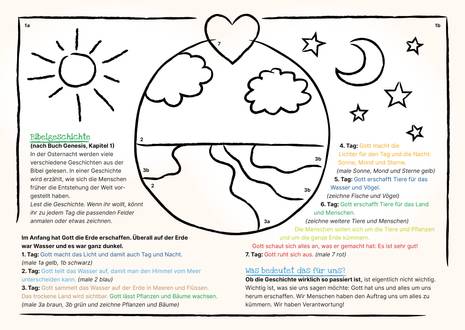 1a
1b
7
2
3b
3b
2
3b
3a
Bibelgeschichte
(nach Buch Genesis, Kapitel 1)
In der Osternacht werden viele
verschiedene Geschichten aus der
Bibel gelesen. In einer Geschichte
wird erzählt, wie sich die Menschen
früher die Entstehung der Welt vor-
gestellt haben.
Lest die Geschichte. Wenn ihr wollt, könnt
ihr zu jedem Tag die passenden Felder
anmalen oder etwas zeichnen.
Im Anfang hat Gott die Erde erschaffen. Überall auf der Erde
war Wasser und es war ganz dunkel.
1. Tag: Gott macht das Licht und damit auch Tag und Nacht.
(male 1a gelb, 1b schwarz)
2. Tag: Gott teilt das Wasser auf, damit man den Himmel vom Meer
unterscheiden kann. (male 2 blau)
3. Tag: Gott sammelt das Wasser auf der Erde in Meeren und Flüssen.
Das trockene Land wird sichtbar. Gott lässt Pflanzen und Bäume wachsen.
(male 3a braun, 3b grün und zeichne Pflanzen und Bäume)
4. Tag: Gott macht die
Lichter für den Tag und die Nacht:
Sonne, Mond und Sterne.
(male Sonne, Mond und Sterne gelb)
5. Tag: Gott erschafft Tiere für das
Wasser und Vögel.
(zeichne Fische und Vögel)
6. Tag: Gott erschafft Tiere für das Land
und Menschen.
(zeichne weitere Tiere und Menschen)
Die Menschen sollen sich um die Tiere und Pflanzen
und um die ganze Erde kümmern.
Gott schaut sich alles an, was er gemacht hat: Es ist sehr gut!
7. Tag: Gott ruht sich aus. (male 7 rot)
Was bedeutet das für uns?
Ob die Geschichte wirklich so passiert ist, ist eigentlich nicht wichtig.
Wichtig ist, was sie uns sagen möchte: Gott hat uns und alles um uns
herum erschaffen. Wir Menschen haben den Auftrag uns um alles zu
kümmern. Wir haben Verantwortung!